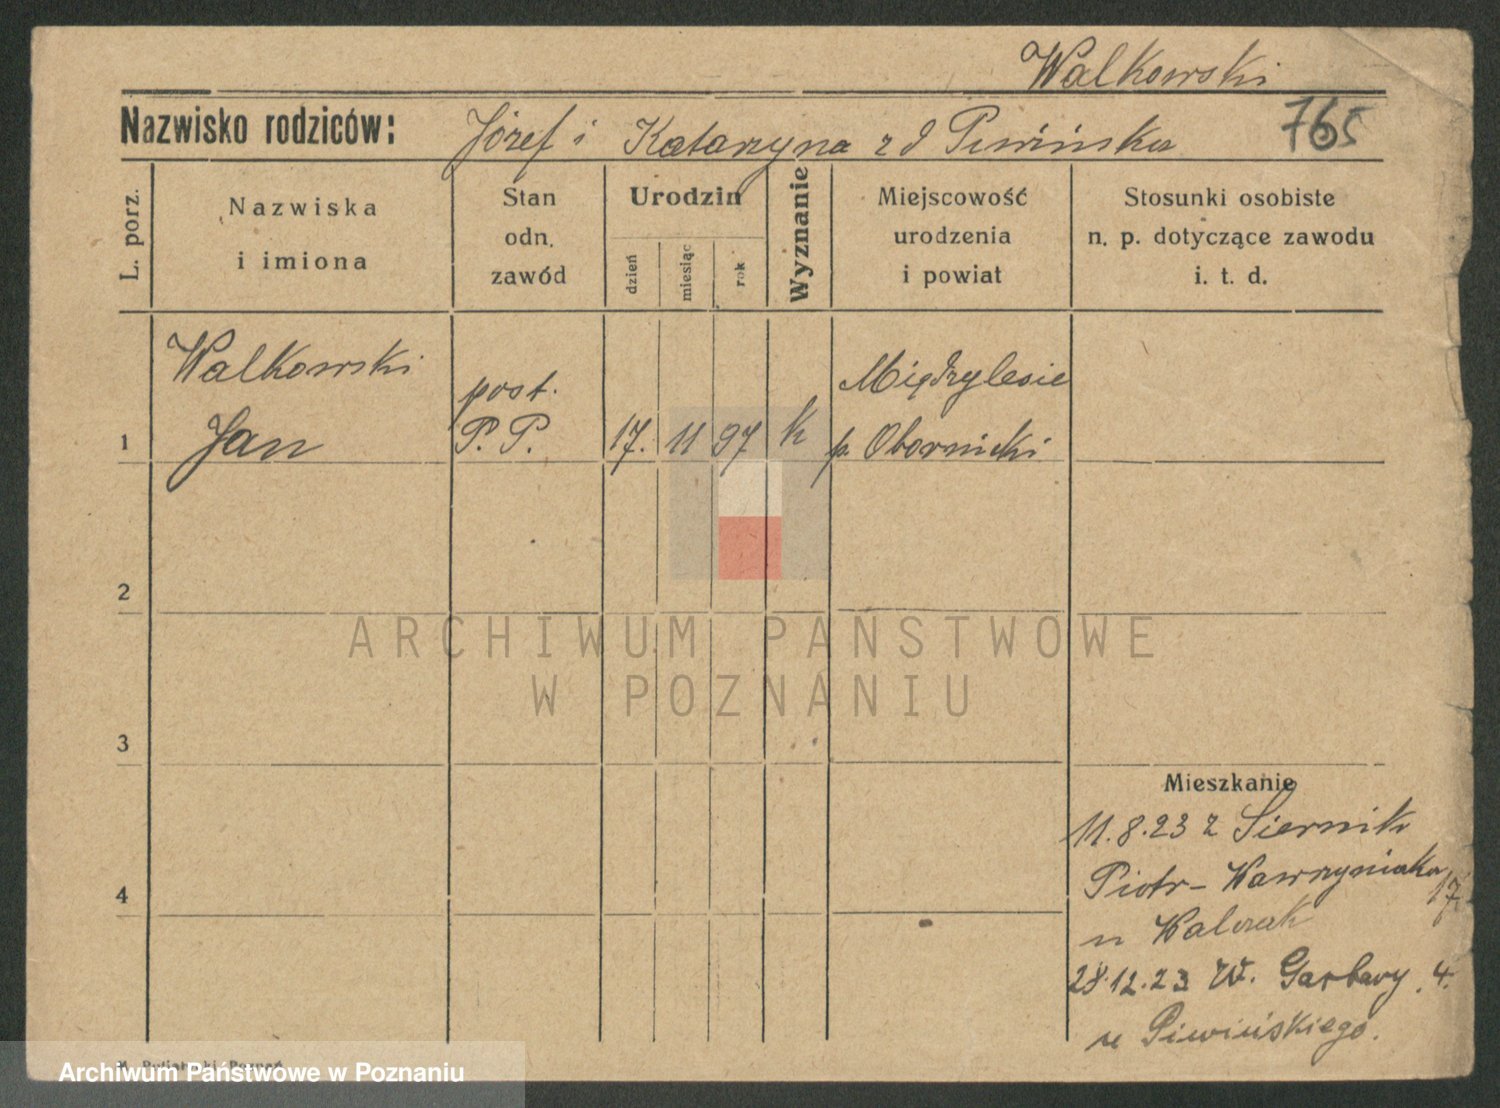 Walkowski
Nazwisko rodziców: Józef i Katarzyna z d Piwińska
765
L. porz.
Nazwiska
i imiona
Stan
odn.
zawód
Urodzin
dzień
miesiąc
rok
Wyznanie
Miejscowość
urodzenia
i powiat
Stosunki osobiste
n. p. dotyczące zawodu
i. t. d.
Walkowski
Jan
post.
P. P.
1
17. 11 97 k
Międzylesie
p. Obornicki
2
3
4
Mieszkanie
11.8.23 z Siernik
Piotr-Wawrzyniaka 17.
u Walczak
28.12.23 W. Garbary 4.
u Piwińskiego.
ARCHIWUM PAŃSTWOWE
W POZNANIU
Poznań
Archiwum Państwowe w Poznaniu